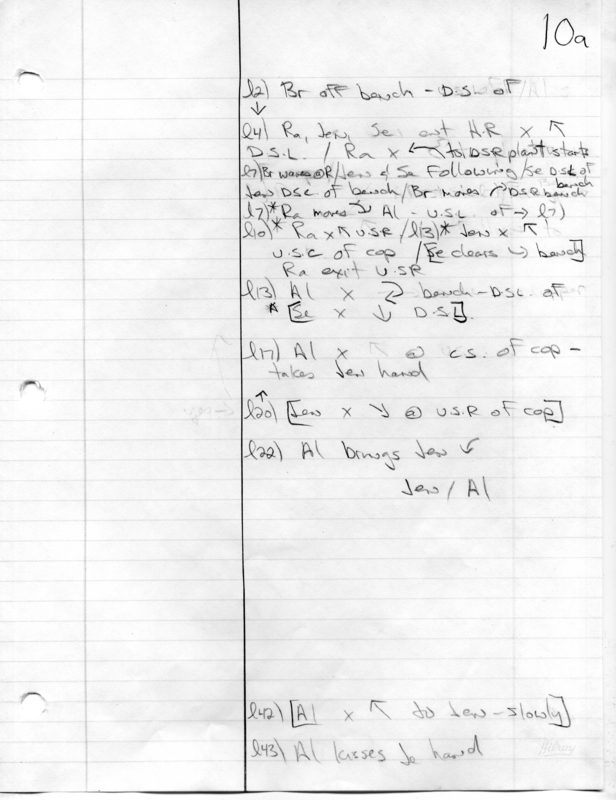 10a
l2) Br off bench - D.S. of /Al
↓
l4) Ra, Jen, Se ent H.R X ↖
D.S.L. / Ra X ↖ to DSR plant starts
l7) Br waves @ R / Jen & Se Following / Se DSL of
Jen DSC of bench / Br moves → DSR bench
bench
l7)* Ra moves ↘ Al - U.S.L of → l7)
l10)* Ra X ↖ U.S.R / l13)* Jen X ↖
U.S.C of cop / [Se clears ↪ bench]
Ra exit U.S.R
l13) Al X bench - D.S.C. of
* [Se X ↓ D.S.L]
l17) Al X ↖ @ C.S. of cop -
takes Jen hand
↑
l20) [Jen X ↘ @ U.S.R of cop]
l22) Al brings Jen ↙
Jen / Al
l42) [Al X ↖ to Jen - slowly]
l43) Al kisses Je hand
Hilroy